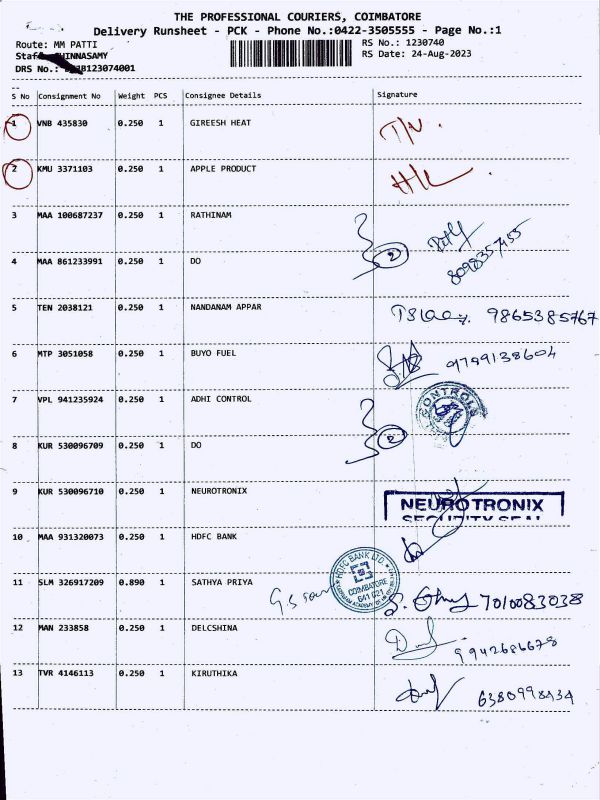 THE PROFESSIONAL COURIERS, COIMBATORE
Delivery Runsheet - PCK - Phone No.:0422-3505555 - Page No.:1
Route: MM PATTI
RS No.: 1230740
RS Date: 24-Aug-2023
DRS No.:
S No Consignment No Weight PCS Consignee Details Signature
1 VNB 435830 0.250 1 GIREESH HEAT
2 KMU 3371103 0.250 1 APPLE PRODUCT
3 MAA 100687237 0.250 1 RATHINAM
2
8098357455
4 MAA 861233991 0.250 1 DO
5 TEN 2038121 0.250 1 NANDANAM APPAR 9865385767
6 MTP 3051058 0.250 1 BUYO FUEL 9799138604
7 VPL 941235924 0.250 1 ADHI CONTROL CONTROLS
2
8 KUR 530096709 0.250 1 DO
9 KUR 530096710 0.250 1 NEUROTRONIX NEUROTRONIX
SECURITY SEAL
10 MAA 931320073 0.250 1 HDFC BANK
HDFC BANK LTD.
COIMBATORE
641 021
11 SLM 326917209 0.890 1 SATHYA PRIYA 7010083038
12 MAN 233858 0.250 1 DELCSHINA
9942686678
13 TVR 4146113 0.250 1 KIRUTHIKA 6380998434